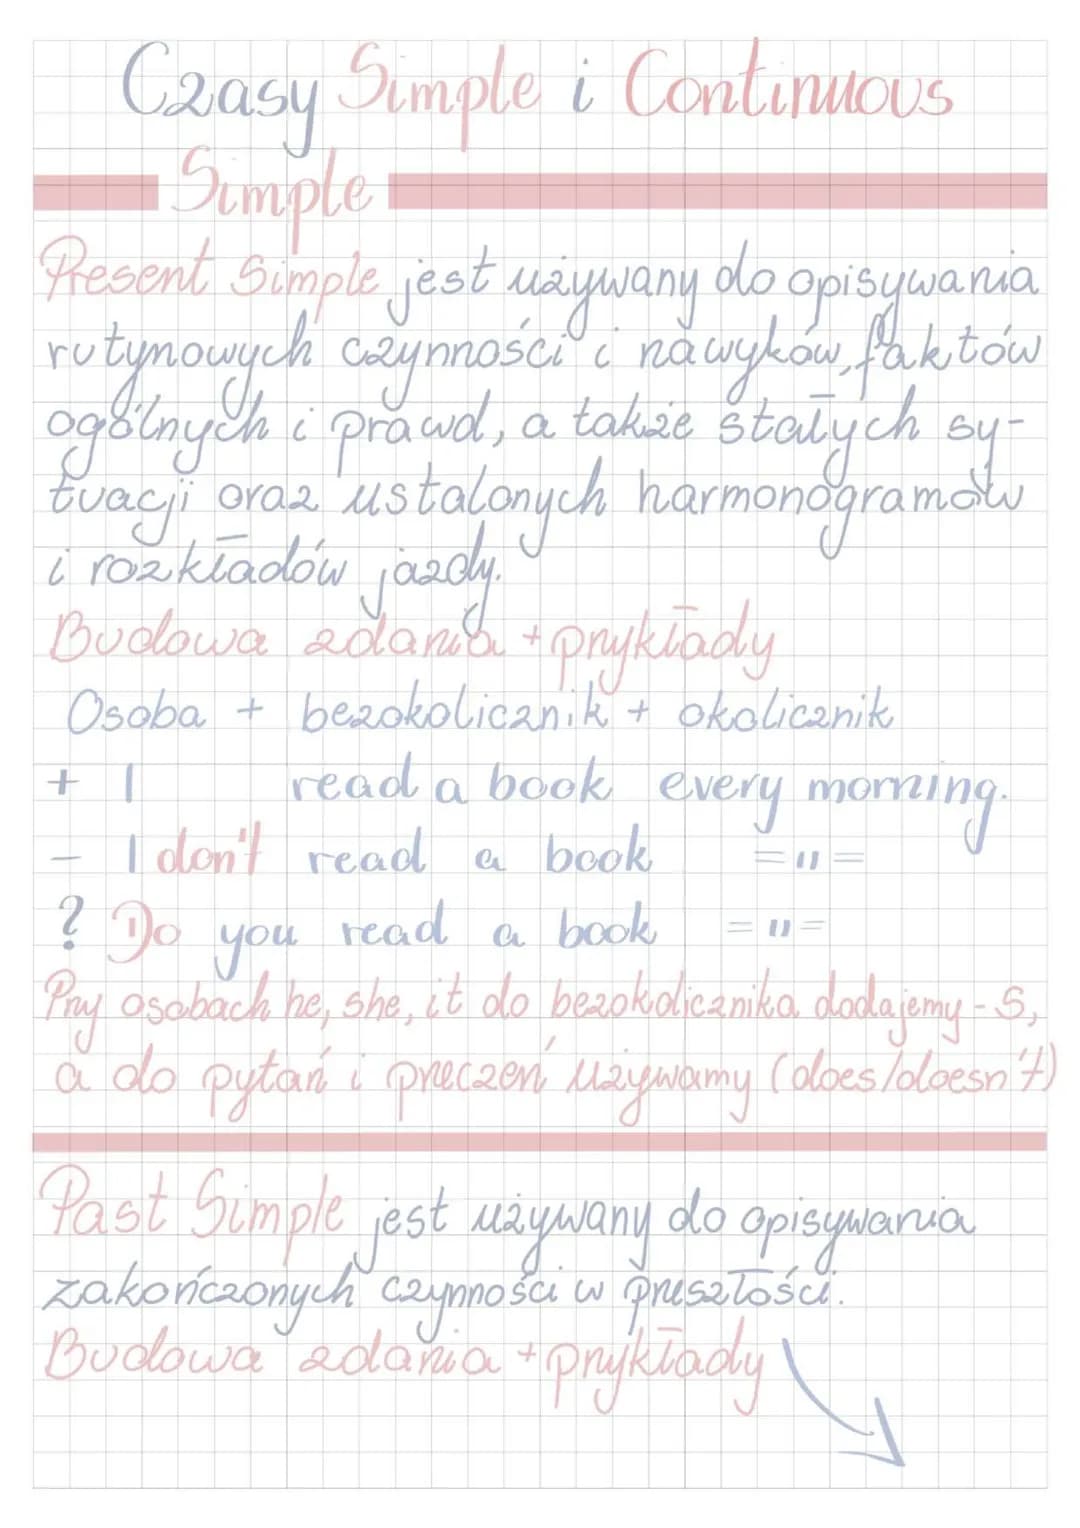 Czasy Simple i Continuous
Simple
Present Simple jest używany do opisywania
rutynowych czynności i nawyków, faktów
ogólnych i prawd, a także stałych sy-
tuacji oraz ustalonych harmonogramów
i rozkładów jazdy.
Budowa zdania + przykłady
Osoba + bezokolicznik + okolicznik
+ I read a book every morning.
- I don't read a book =11=
? Do you read a book =11=
Przy osobach he, she, it do bezokolicznika dodajemy -S,
a do pytań i przeczeń używamy (does/doesn't)
Past Simple jest używany do opisywania
zakończonych czynności w przeszłości.
Budowa zdania + przykłady